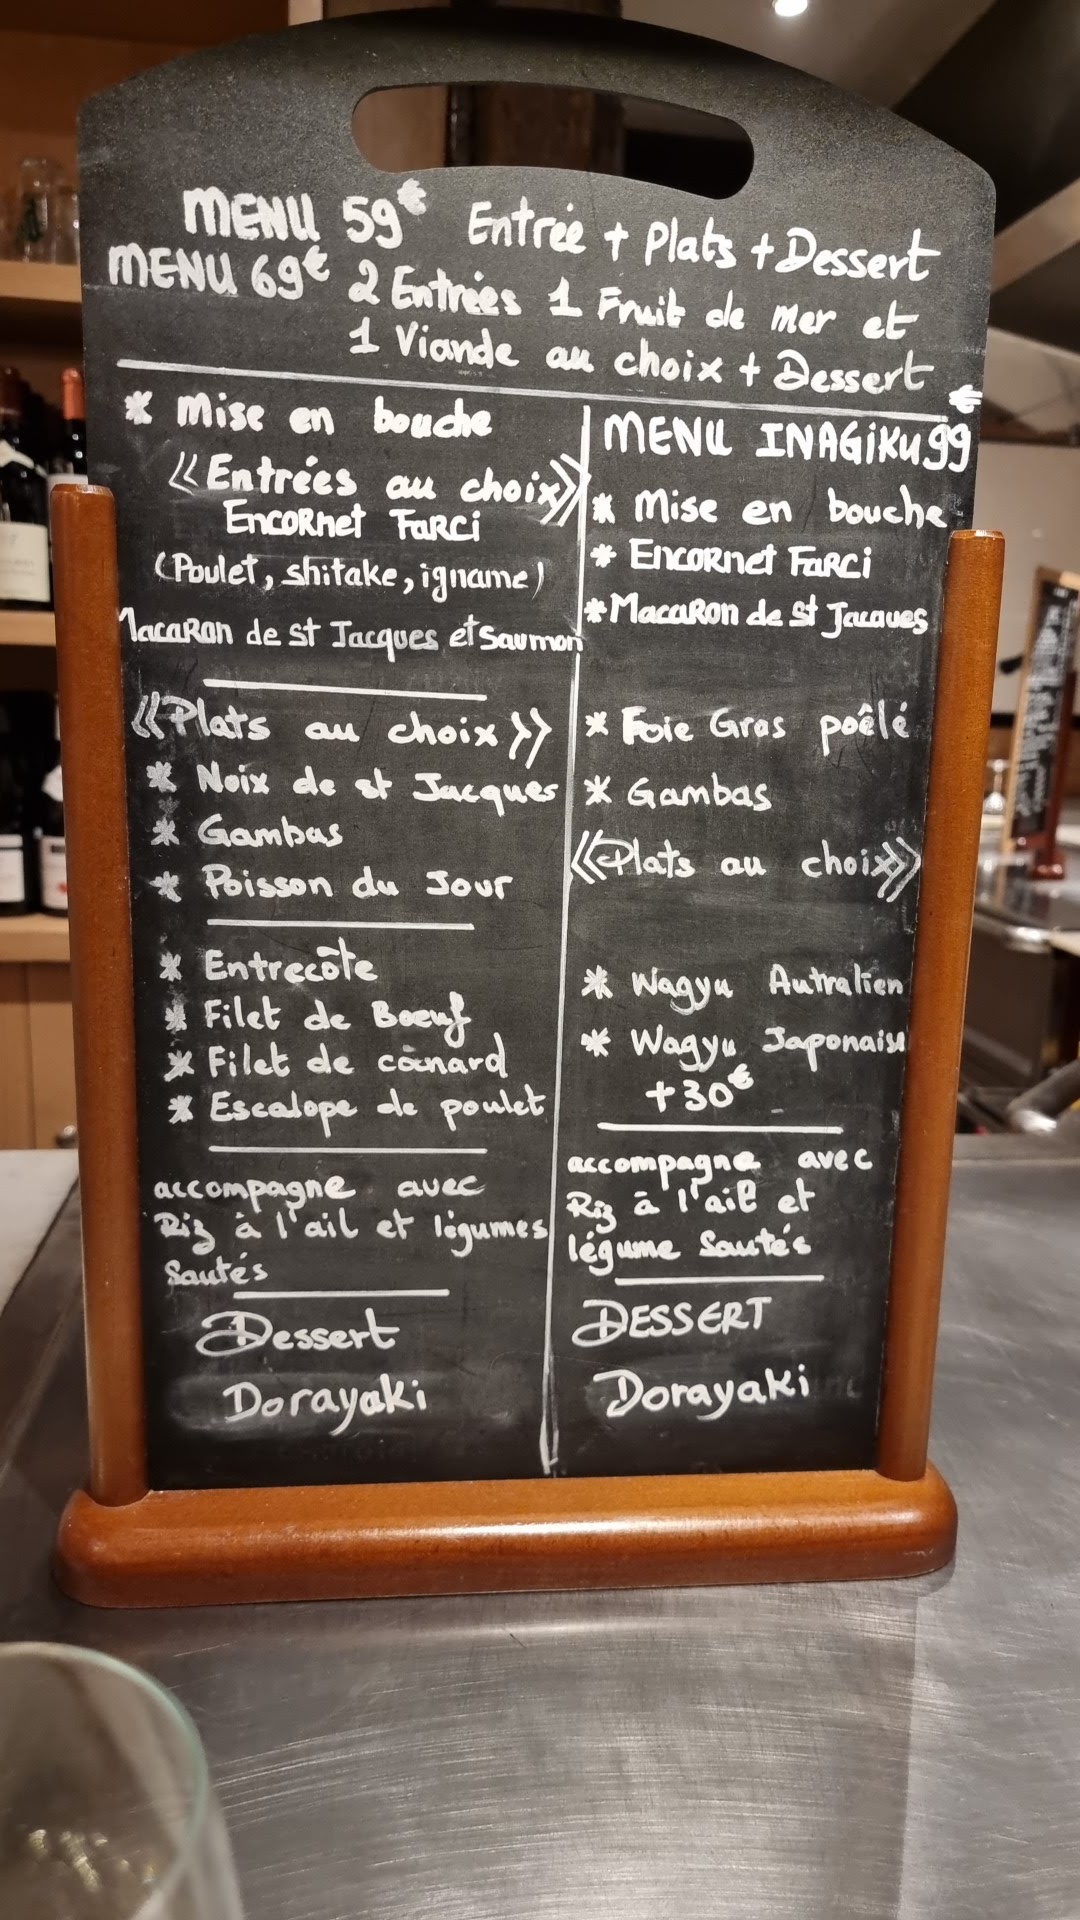 MENU 59€ Entrée + Plats + Dessert
MENU 69€ 2 Entrées 1 Fruit de mer et
1 Viande au choix + Dessert
* Mise en bouche
《Entrées au choix》
Encornet Farci
(Poulet, shitake, igname)
Macaron de st Jacques et Saumon
《Plats au choix》
* Noix de st Jacques
* Gambas
* Poisson du Jour
* Entrecôte
* Filet de Bœuf
* Filet de canard
* Escalope de poulet
accompagne avec
Riz à l'ail et légumes
Sautés
Dessert
Dorayaki
MENU INAGIKU 99€
* Mise en bouche
* Encornet Farci
* Macaron de st Jacques
* Foie Gras poêlé
* Gambas
《Plats au choix》
* Wagyu Autralien
* Wagyu Japonaise
+30€
accompagne avec
Riz à l'ail et
légume Sautés
DESSERT
Dorayaki